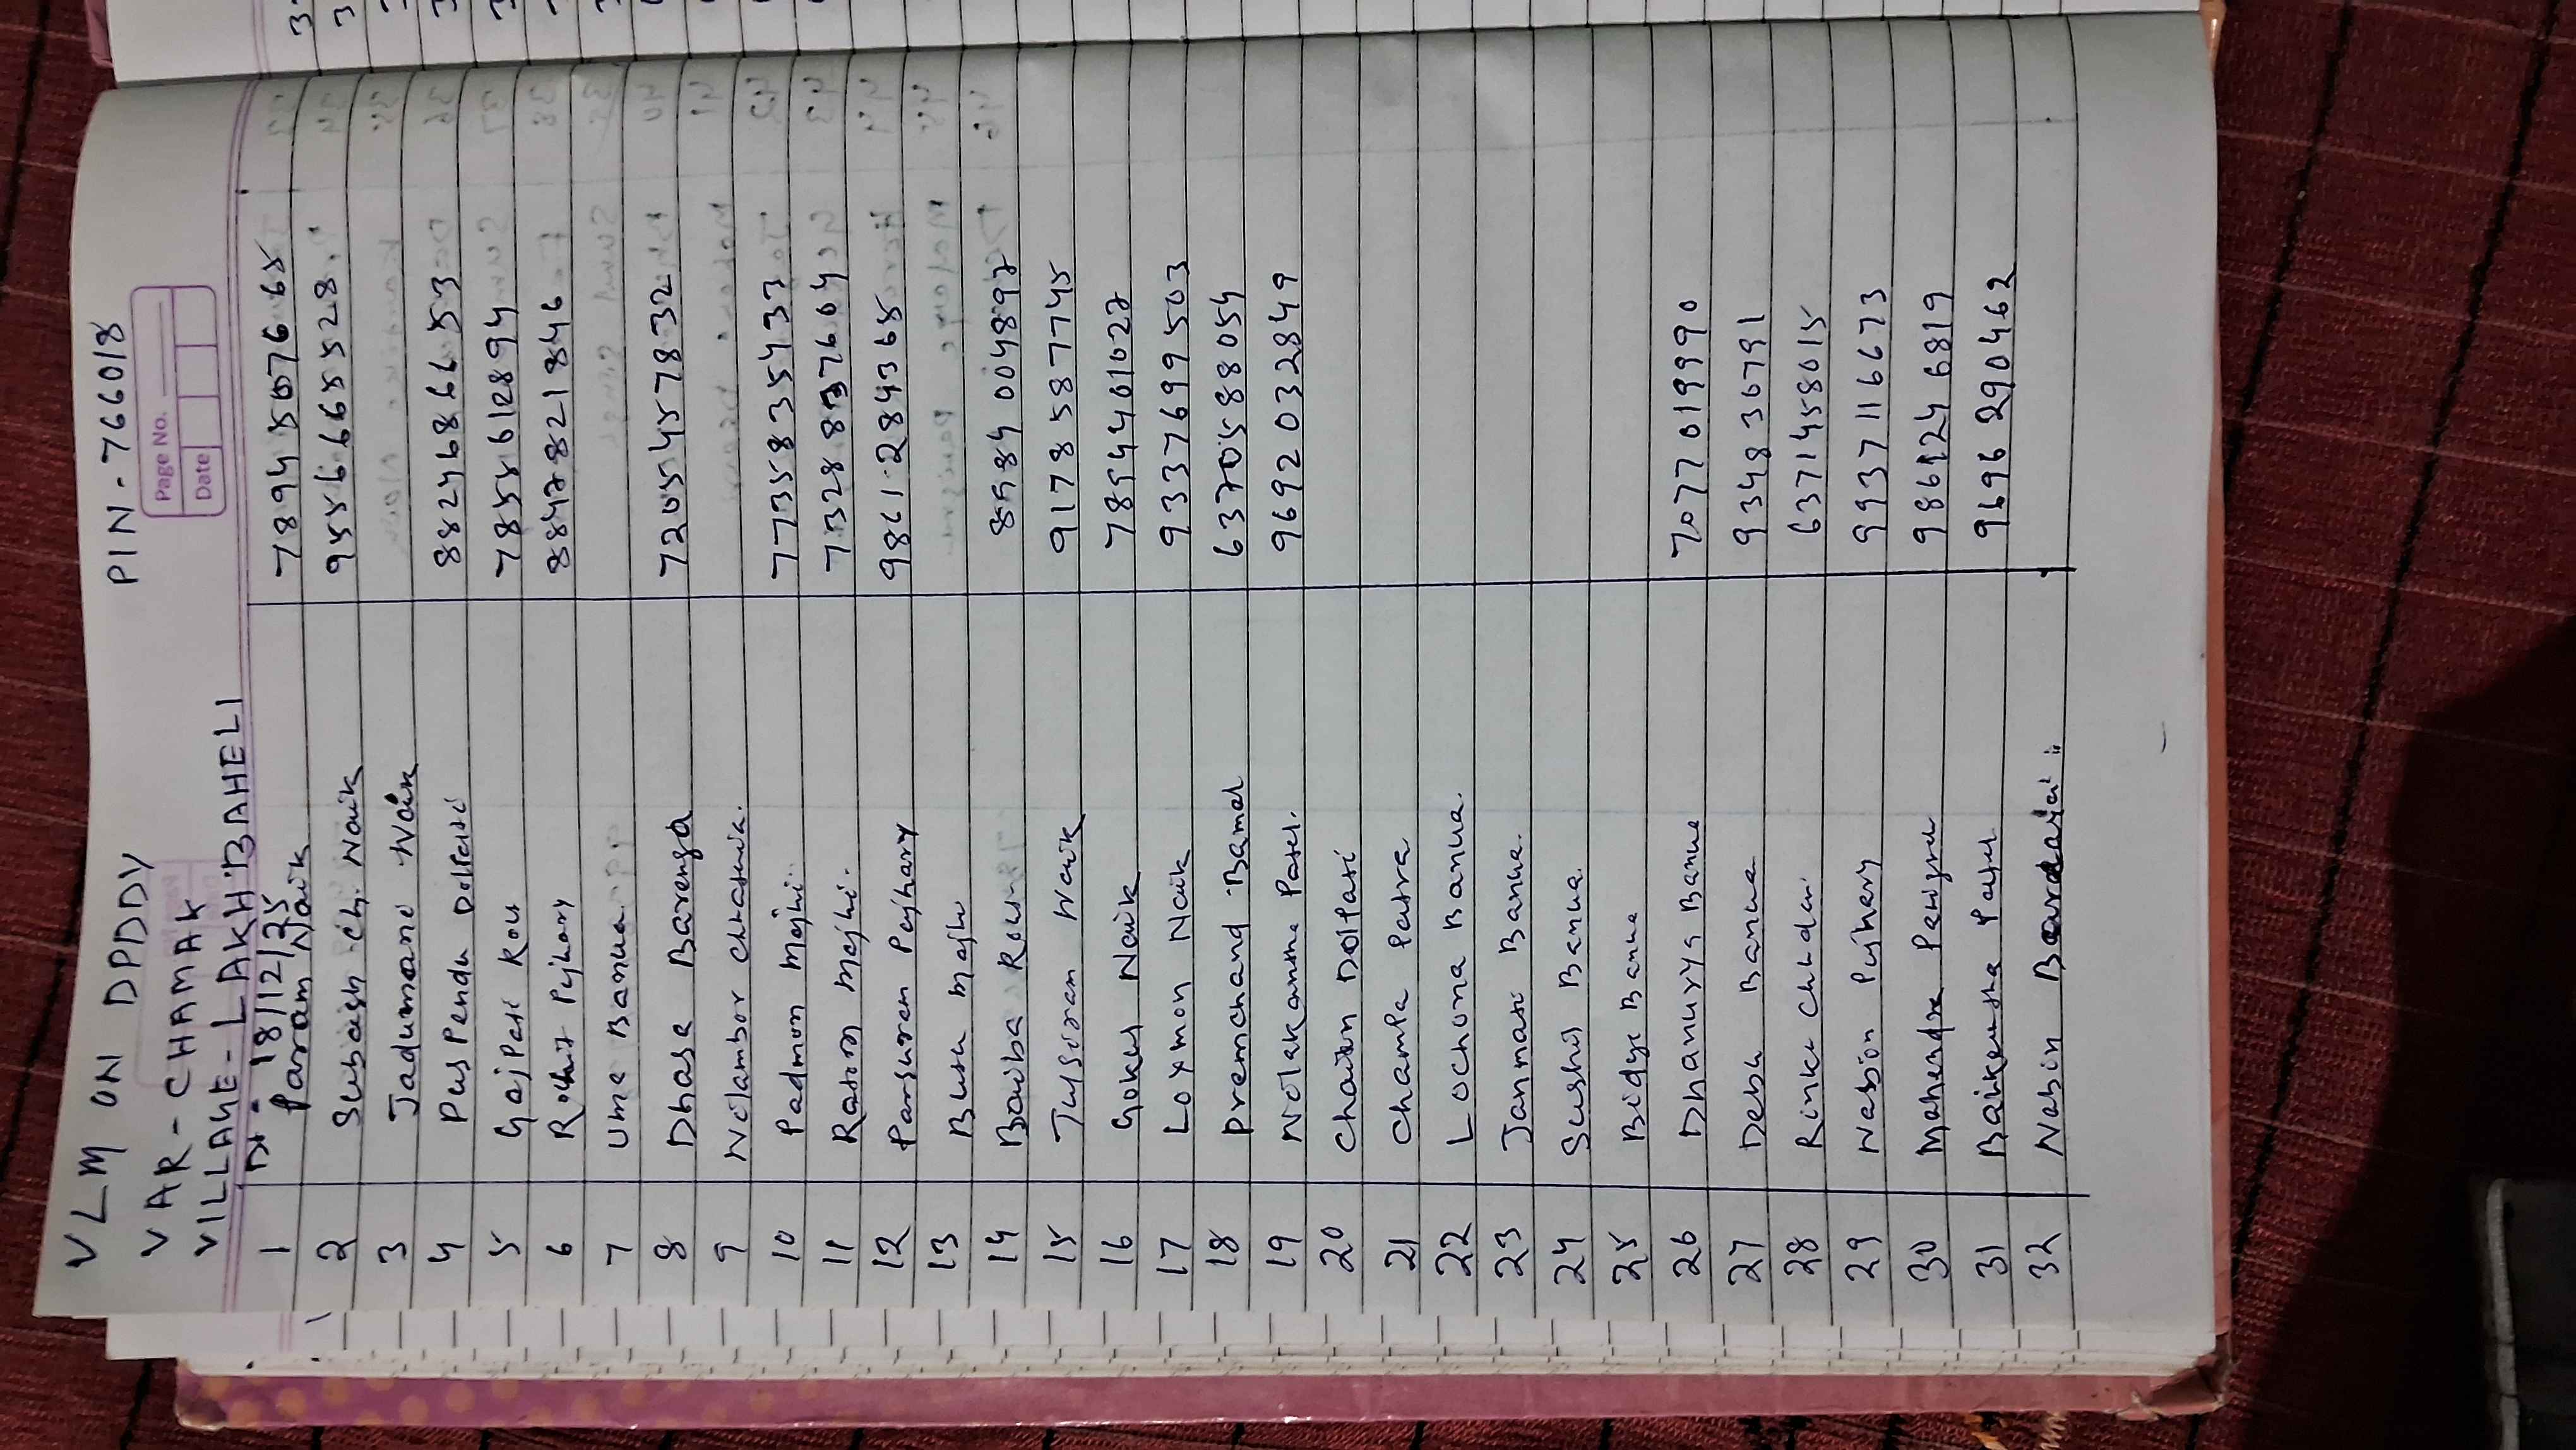 VLM ON DPDDY PIN - 766018
VAR - CHAMAK
VILLAGE - LAKHBAHELI
Page No.
Date
Dt - 18/12/25
1 Param Naik 7894 5076 65
2 Subash Ch. Naik 9556665528
3 Jadumani Naik
4 Puspendu Dolpati 8824686653
5 Gajpati Rou 7855612894
6 Rohit Pujhary 8847821846
7 Uma Banua
8 Dhasa Barenga 7205457832
9 Nilambor Chhatria.
10 Padmon Majhi 7735835437
11 Ratan Majhi 7328837604
12 Parsuram Pujhary 9861284365
13 Busu Majhi
14 Bowba Rout 8984004897
15 Tulsiram Naik 9178587745
16 Gokul Naik 7854401027
17 Loxmon Naik 9337699503
18 Premchand Bamel 6370588054
19 Nilakantha Patel. 9692032849
20 Chaitan Dolpati
21 Champa Patra
22 Lochona Banua.
23 Janmati Banua.
24 Sushil Banua.
25 Bidya Banua
26 Dhanurya Banua 7077019990
27 Deba Banua 9348330791
28 Rinku Chhdai 6371458015
29 Nabion Pujhary 9937116673
30 Mahendra 986124 6819
31 Baikuntha Patel 9696290462
32 Nabin